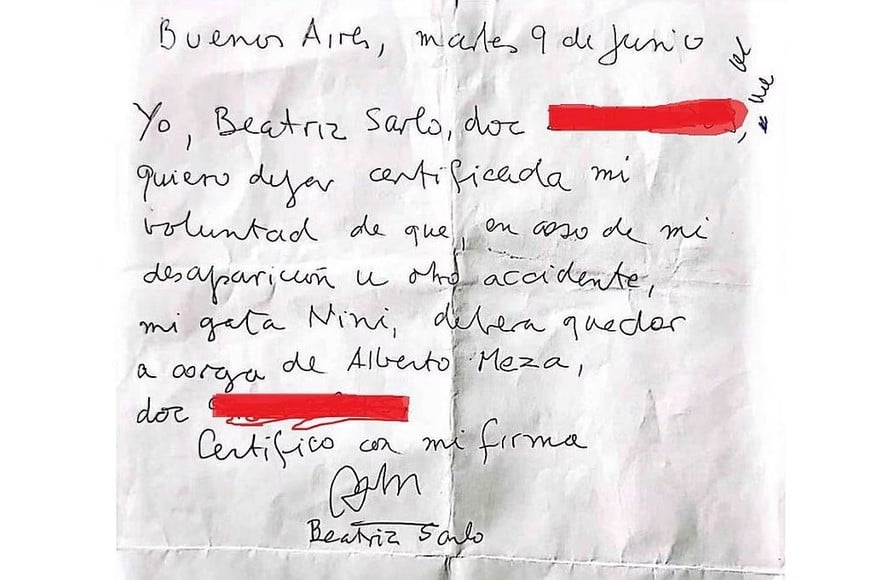 Buenos Aires, martes 9 de junio
Yo, Beatriz Sarlo, doc
quiero dejar certificada mi
voluntad de que, en caso de mi
desaparición u otro accidente,
mi gata Nini, debera quedar
a cargo de Alberto Meza,
doc
Certifico con mi firma
Beatriz Sarlo